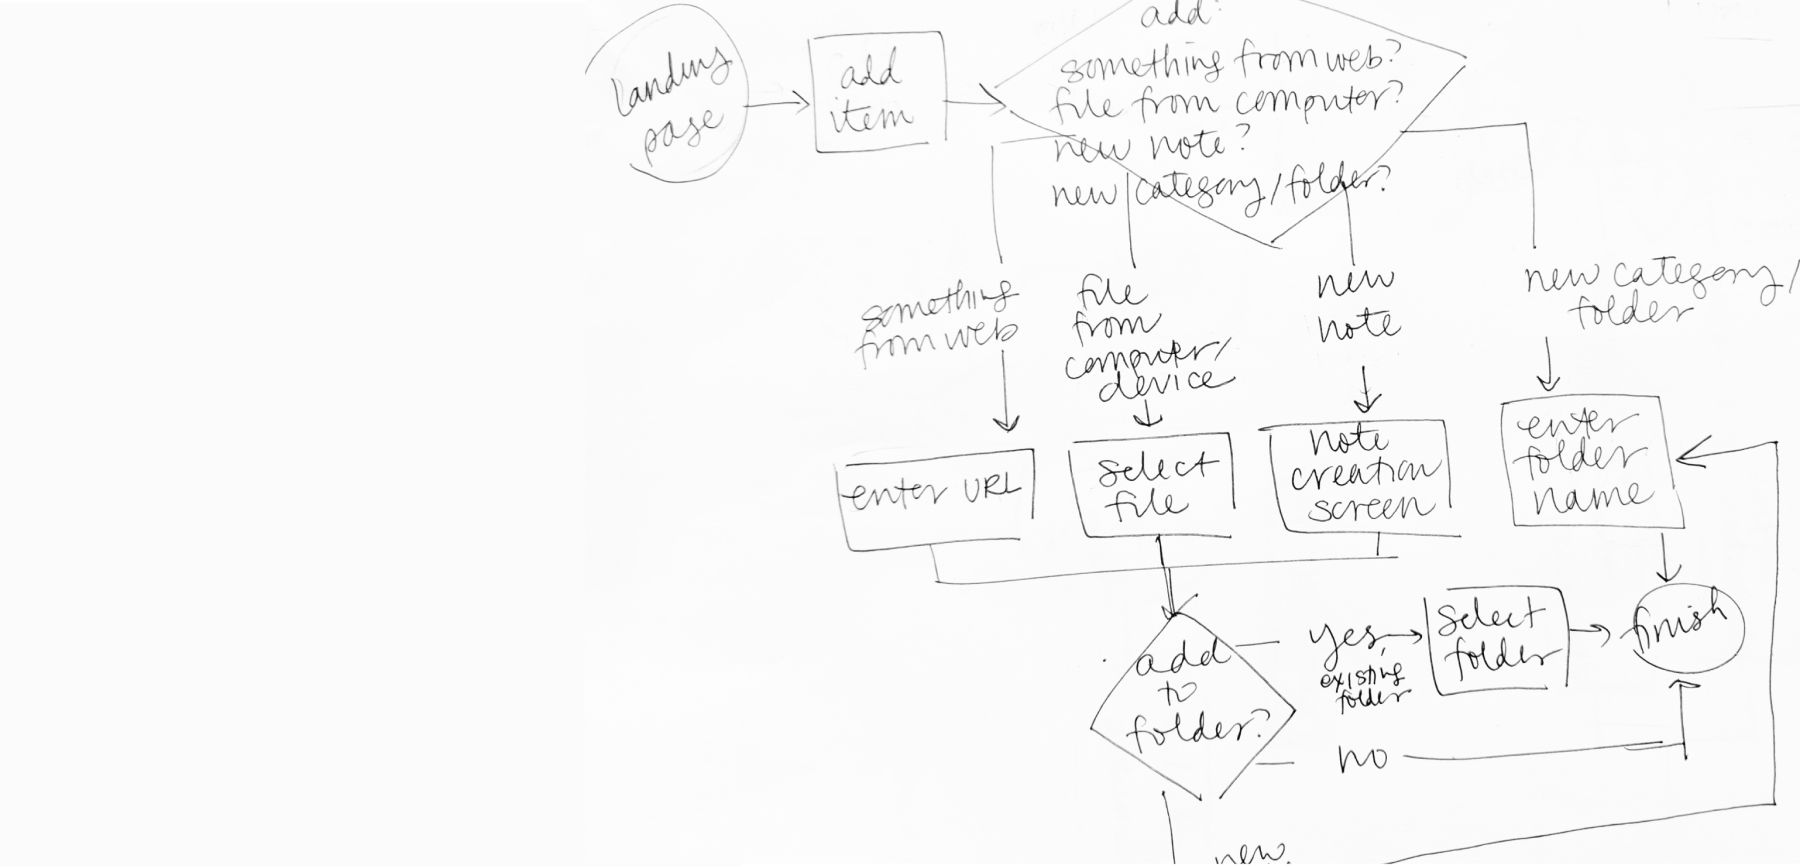 landing
page
add
item
add:
something from web?
file from computer?
new note?
new category/folder?
something
from web
file
from
computer/
device
new
note
new category/
folder
enter URL
select
file
note
creation
screen
enter
folder
name
add
to
folder?
yes,
existing
folder
select
folder
finish
no
new